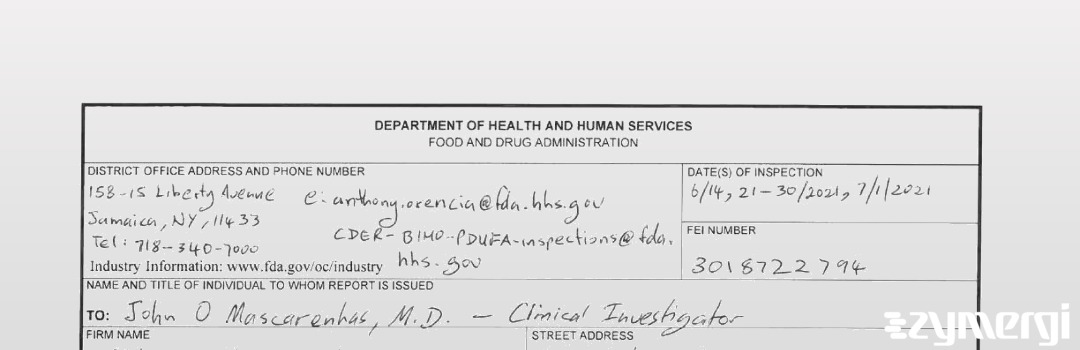 DEPARTMENT OF HEALTH AND HUMAN SERVICES
FOOD AND DRUG ADMINISTRATION
DISTRICT OFFICE ADDRESS AND PHONE NUMBER
158-15 Liberty Avenue e: anthony.orencia@fda.hhs.gov
Jamaica, NY, 11433
CDER-BIMO-PDUFA-inspections@fda.
Tel: 718-340-7000
Industry Information: www.fda.gov/oc/industry hhs.gov
DATE(S) OF INSPECTION
6/14, 21-30/2021, 7/1/2021
FEI NUMBER
3018722794
NAME AND TITLE OF INDIVIDUAL TO WHOM REPORT IS ISSUED
TO: John O Mascarenhas, M.D. - Clinical Investigator
FIRM NAME
STREET ADDRESS
zymergi